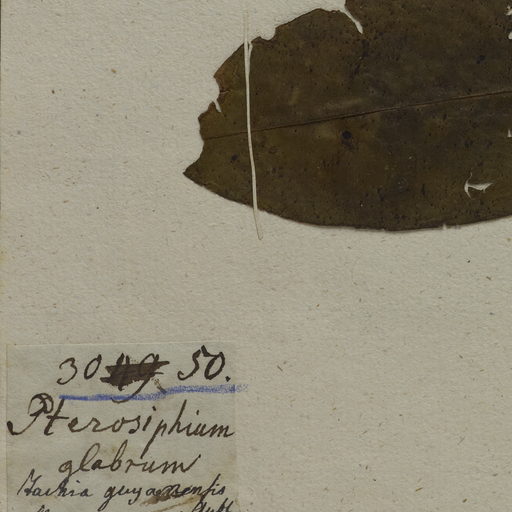 30 49 50.
Pterosiphium
glabrum
Tachia guyanensis
Aubl